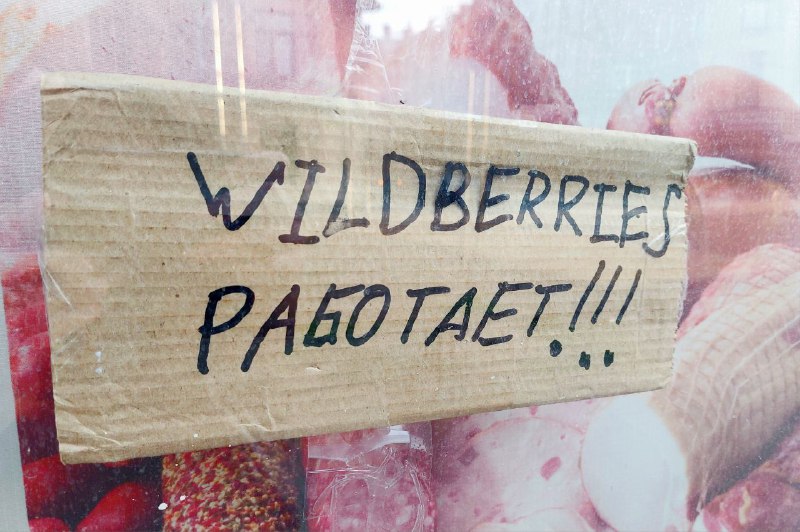 WILDBERRIES
РАБОТАЕТ!!!